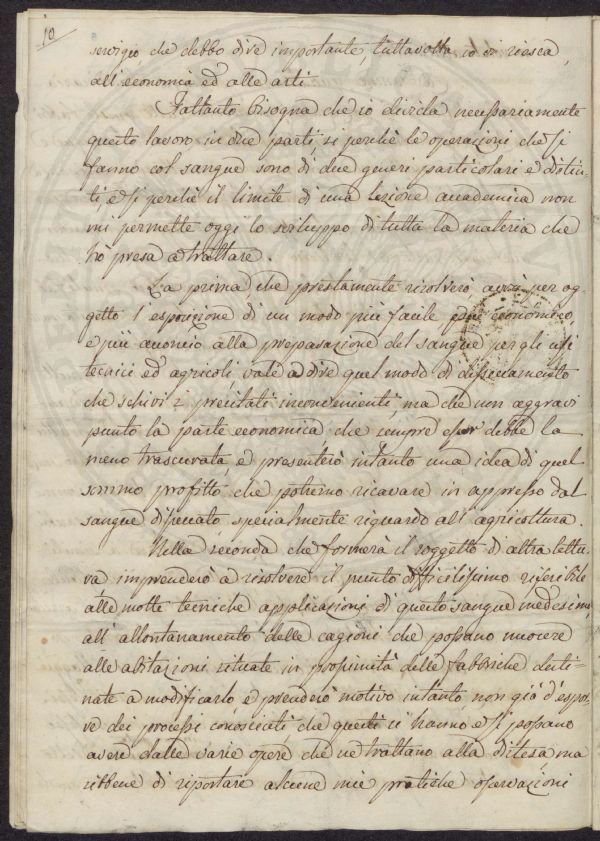 10
servigio che debbo dire importante, tuttavolta io ci riesca,
all'economia ed alle arti.
Fattanto bisogna che io divida necessariamente
questo lavoro in due parti, si perchè le operazioni che si
fanno col sangue sono di due generi particolari e distin-
ti, e si perchè il limite di una lezione accademica non
mi permette oggi lo sviluppo di tutta la materia che
hò presa a trattare.
La prima che prestamente risolverò avrà per og-
getto l'esposizione di un modo più facile più economico,
e più acconcio alla preparazione del sangue per gli usi
tecnici ed agricoli, vale a dire quel modo di disseccamento
che schivi i precitati inconvenienti, ma che non aggravi
punto la parte economica, che sempre esser debbe la
meno trascurata, e presenterò intanto una idea di quel
sommo profitto che potremo ricavare in appresso dal
sangue disseccato specialmente riguardo all'agricoltura.
Nella seconda che formerà il soggetto di altra lettu-
ra imprenderò a risolvere il punto difficilissimo riferibile
alle molte tecniche applicazioni di questo sangue medesimo,
all'allontanamento delle cagioni che possano nuocere
alle abitazioni situate in prossimità delle fabbriche desti-
nate a modificarlo, e prenderò motivo intanto non già d'espor-
re dei processi conosciuti che questi si hanno e si possano
avere dalle varie opere che ne trattano alla distesa ma
sibbene di riportare alcune mie pratiche osservazioni